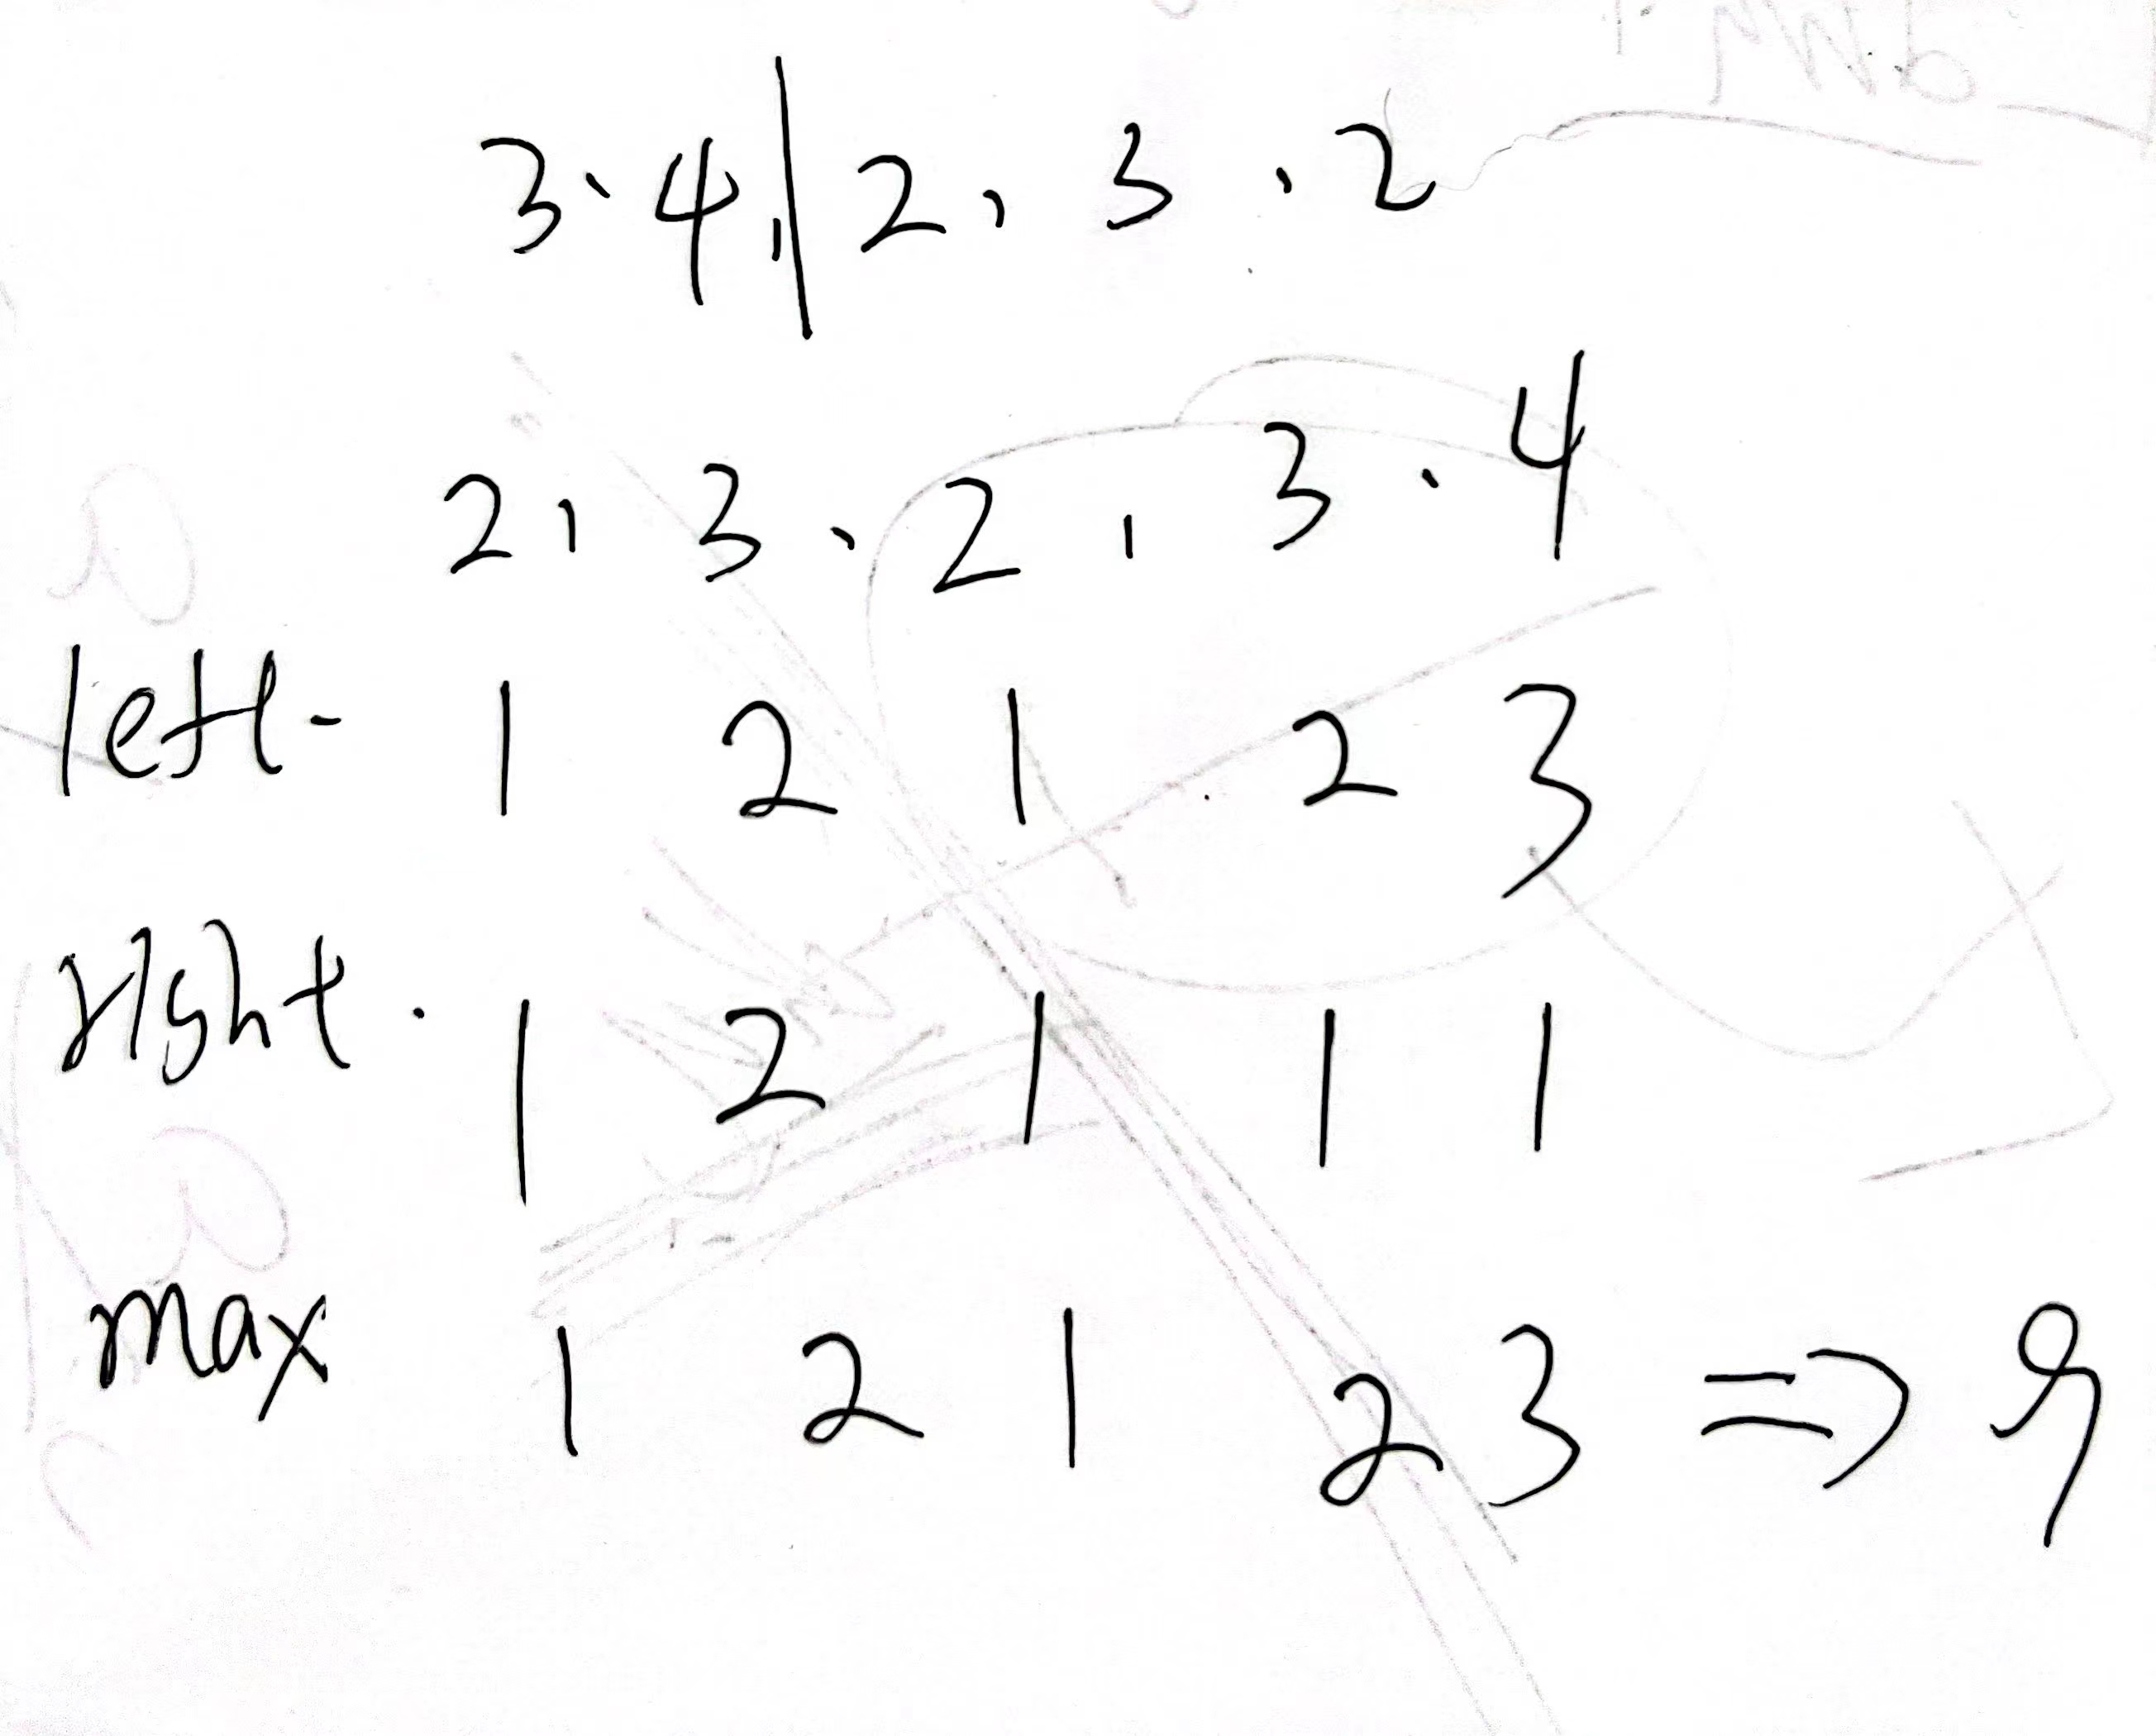 3、4,|2,3、2
2,3、2,3、4
left- 1 2 1 2 3
right. 1 2 1 1 1
max 1 2 1 2 3 => 9